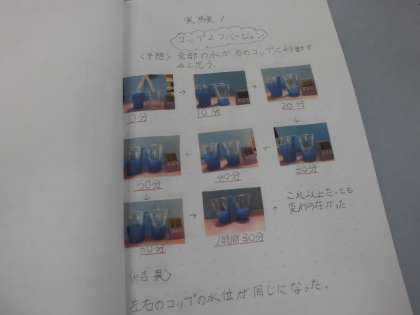 実験1
コップ2つバージョン
〈予想〉全部の水が右のコップに移動す
ると思う。
0分
10分
20分
30分
40分
50分
60分
1時間30分
これ以上たっても
変わらなかった
〈結果〉
左右のコップの水位が同じになった。